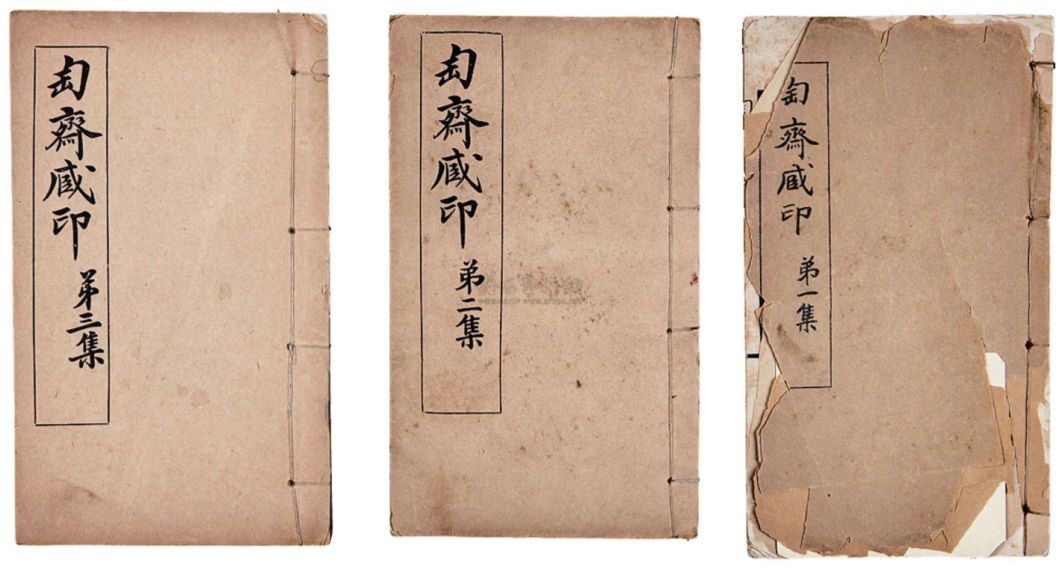 匋齋臧印 第三集
匋齋臧印 第二集
匋齋臧印 第一集